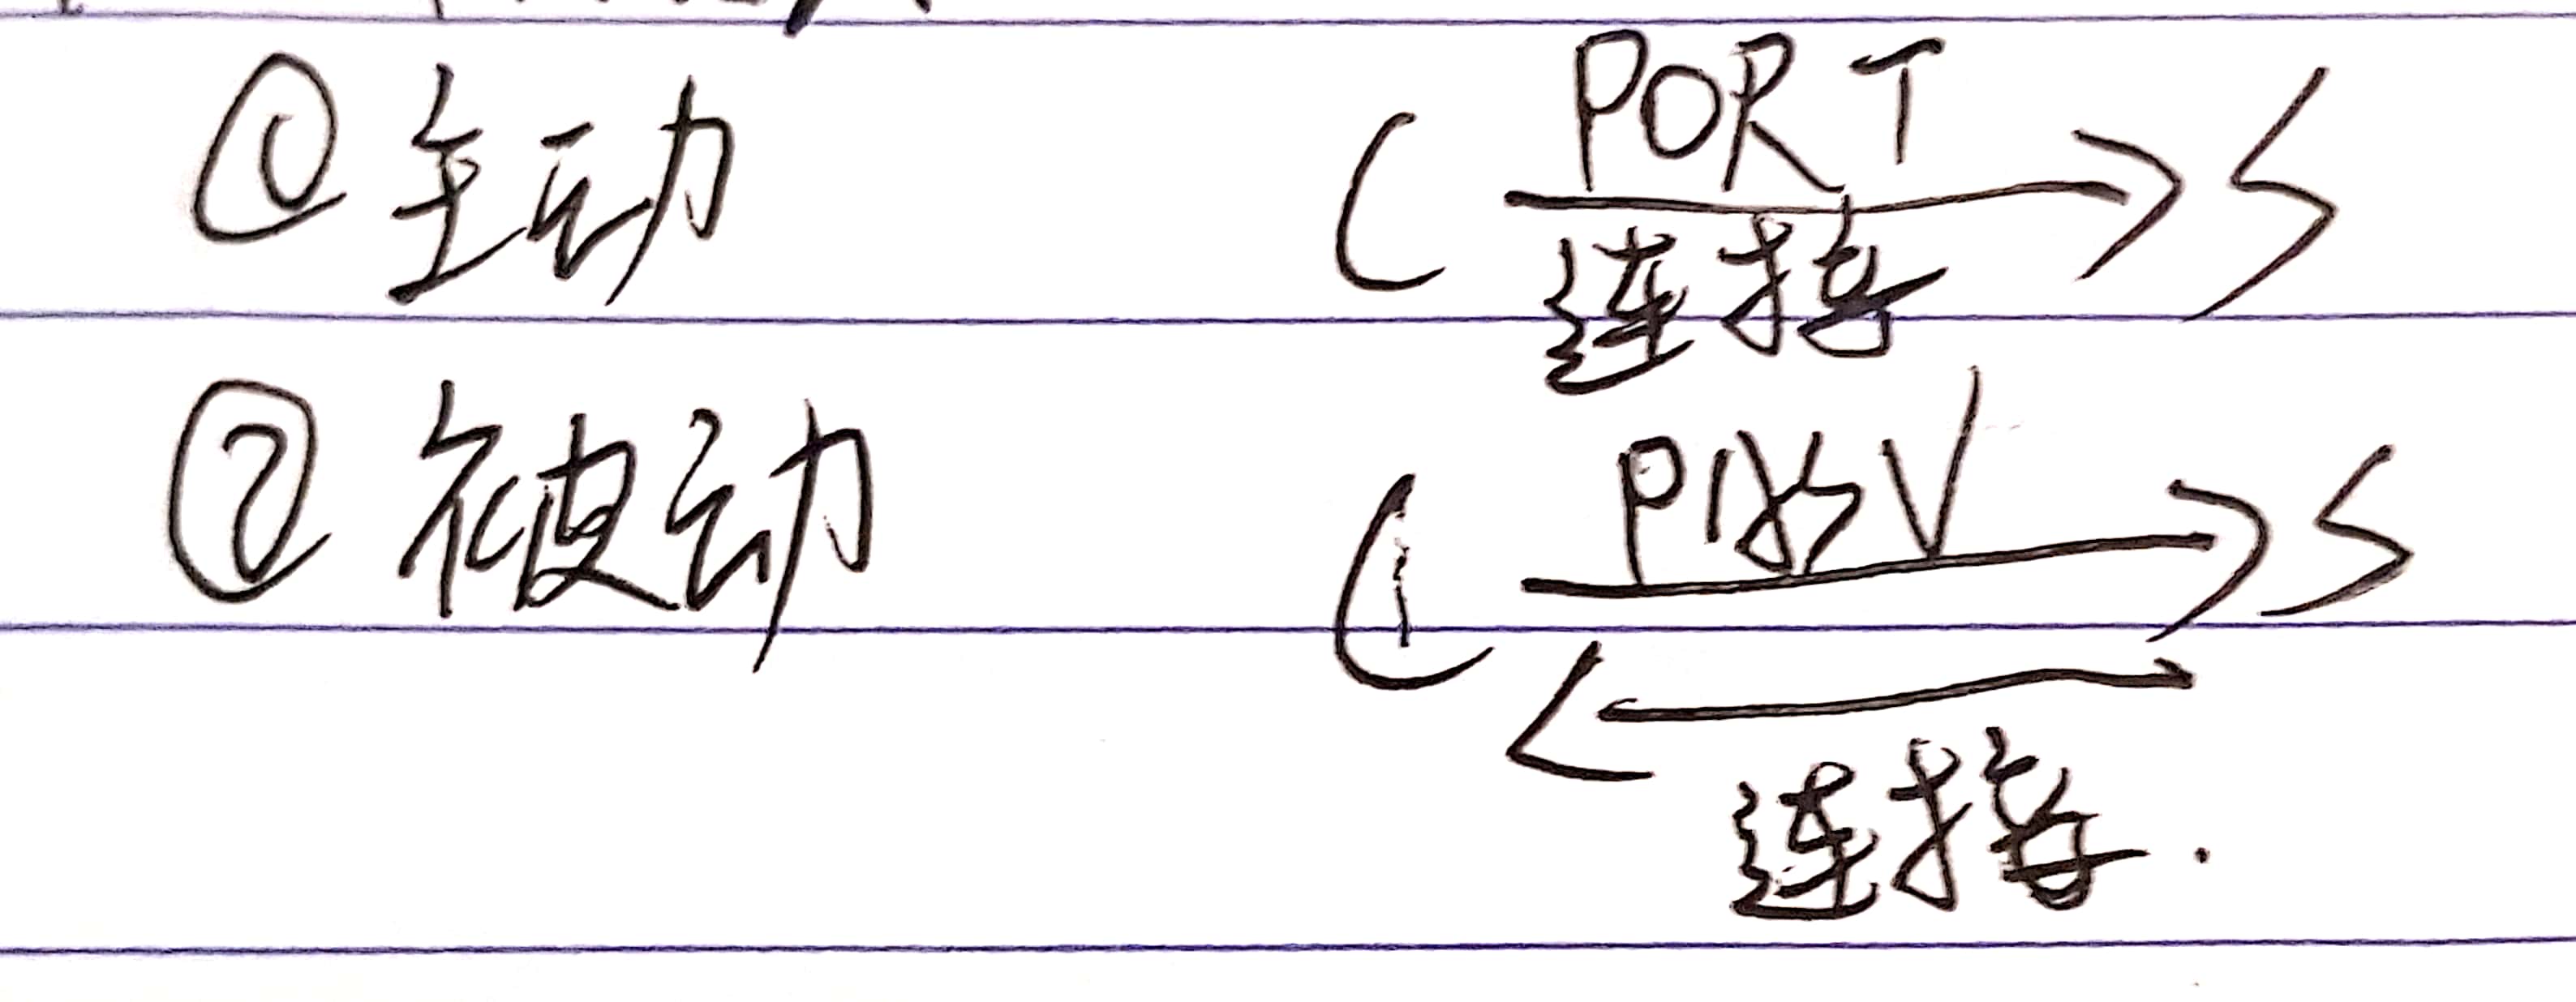 ① 主动 C PORT S
连接
② 被动 C PASV S
连接.